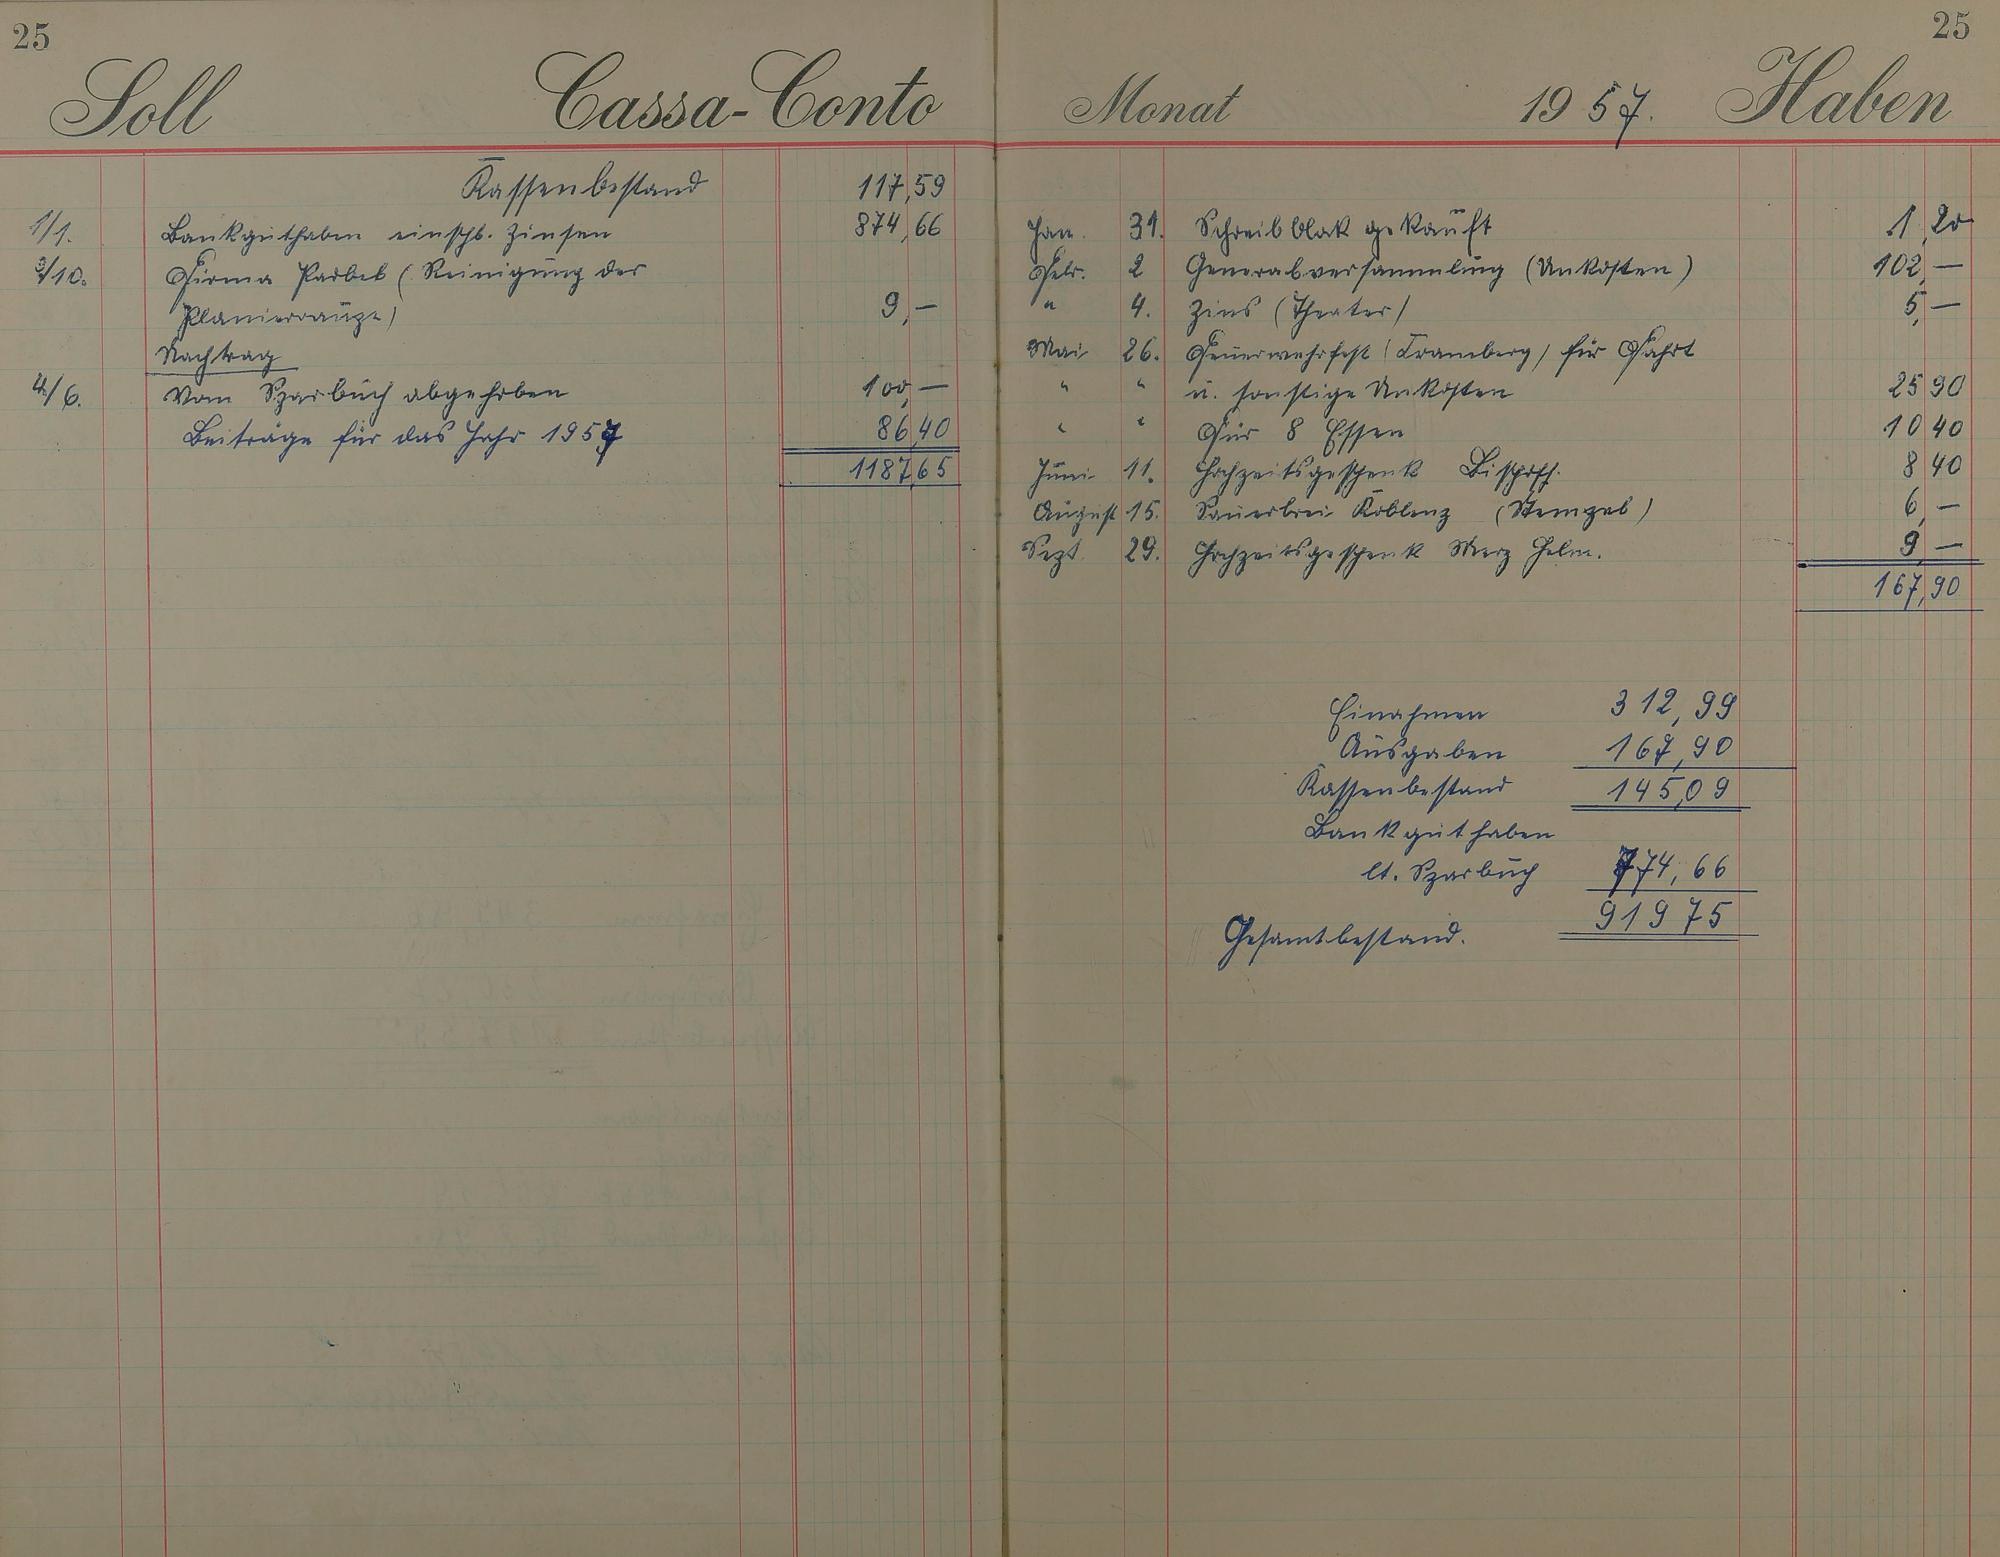 25
Soll Cassa-Conto
Kassenbestand 117,59
1/1. Bankguthaben einschl. Zinsen 874,66
3/10. Firma Parbel (Reinigung der
Planierraupe) 9,—
Nachtrag
4/6. Vom Sparbuch abgehoben 100,—
Beiträge für das Jahr 1957 86,40
1187,65
25
Monat 1957. Haben
Jan. 31. Schreibblok gekauft 1,20
Febr. 2 Generalversammlung (Unkosten) 102,—
" 4. Zins (Theater) 5,—
Mai 26. Feuerwehrfest (Cramberg) für Fahrt
" " u. sonstige Unkosten 25 90
" " Für 8 Essen 10 40
Juni 11. Hochzeitsgeschenk Bischoff. 8 40
August 15. Sauerbrei Koblenz (Stempel) 6,—
Sept. 29. Hochzeitsgeschenk Merz Helm. 9,—
167,90
Einahmen 312,99
Ausgaben 167,90
Kassenbestand 145,09
Bankguthaben
lt. Sparbuch 774,66
Gesamtbestand. 919 75